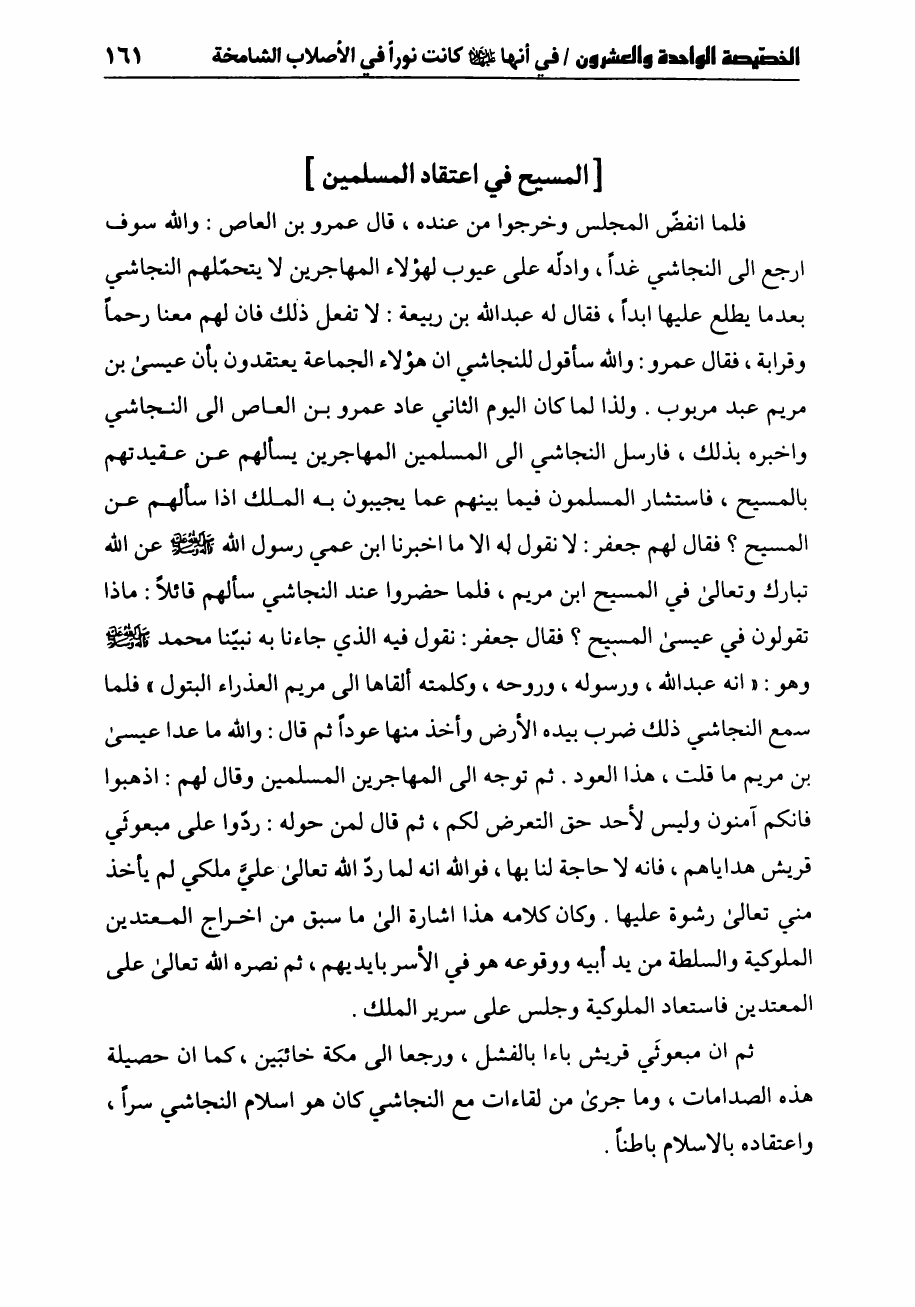 الخصّيصة الواحدة والعشرون / في أنها عليها السلام كانت نوراً في الأصلاب الشامخة ١٦١
[ المسيح في اعتقاد المسلمين ]
فلما انفضّ المجلس وخرجوا من عنده ، قال عمرو بن العاص : والله سوف
ارجع الى النجاشي غداً ، وادلّه على عيوب لهؤلاء المهاجرين لا يتحمّلهم النجاشي
بعدما يطلع عليها ابداً ، فقال له عبدالله بن ربيعة : لا تفعل ذلك فان لهم معنا رحماً
وقرابة ، فقال عمرو : والله سأقول للنجاشي ان هؤلاء الجماعة يعتقدون بأن عيسىٰ بن
مريم عبد مربوب . ولذا لما كان اليوم الثاني عاد عمرو بن العاص الى النجاشي
واخبره بذلك ، فارسل النجاشي الى المسلمين المهاجرين يسألهم عن عقيدتهم
بالمسيح ، فاستشار المسلمون فيما بينهم عما يجيبون به الملك اذا سألهم عن
المسيح ؟ فقال لهم جعفر : لا نقول له الا ما اخبرنا ابن عمي رسول الله ﷺ عن الله
تبارك وتعالىٰ في المسيح ابن مريم ، فلما حضروا عند النجاشي سألهم قائلاً : ماذا
تقولون في عيسىٰ المسيح ؟ فقال جعفر : نقول فيه الذي جاءنا به نبيّنا محمد ﷺ
وهو : « انه عبدالله ، ورسوله ، وروحه ، وكلمته ألقاها الى مريم العذراء البتول » فلما
سمع النجاشي ذلك ضرب بيده الأرض وأخذ منها عوداً ثم قال : والله ما عدا عيسىٰ
بن مريم ما قلت ، هذا العود . ثم توجه الى المهاجرين المسلمين وقال لهم : اذهبوا
فانكم آمنون وليس لأحد حق التعرض لكم ، ثم قال لمن حوله : ردّوا على مبعوثَي
قريش هداياهم ، فانه لا حاجة لنا بها ، فوالله انه لما ردّ الله تعالىٰ عليَّ ملكي لم يأخذ
مني تعالىٰ رشوة عليها . وكان كلامه هذا اشارة الىٰ ما سبق من اخراج المعتدين
الملوكية والسلطة من يد أبيه ووقوعه هو في الأسر بايديهم ، ثم نصره الله تعالىٰ على
المعتدين فاستعاد الملوكية وجلس على سرير الملك .
ثم ان مبعوثَي قريش باءا بالفشل ، ورجعا الى مكة خائبَين ، كما ان حصيلة
هذه الصدامات ، وما جرىٰ من لقاءات مع النجاشي كان هو اسلام النجاشي سراً ،
واعتقاده بالاسلام باطناً .